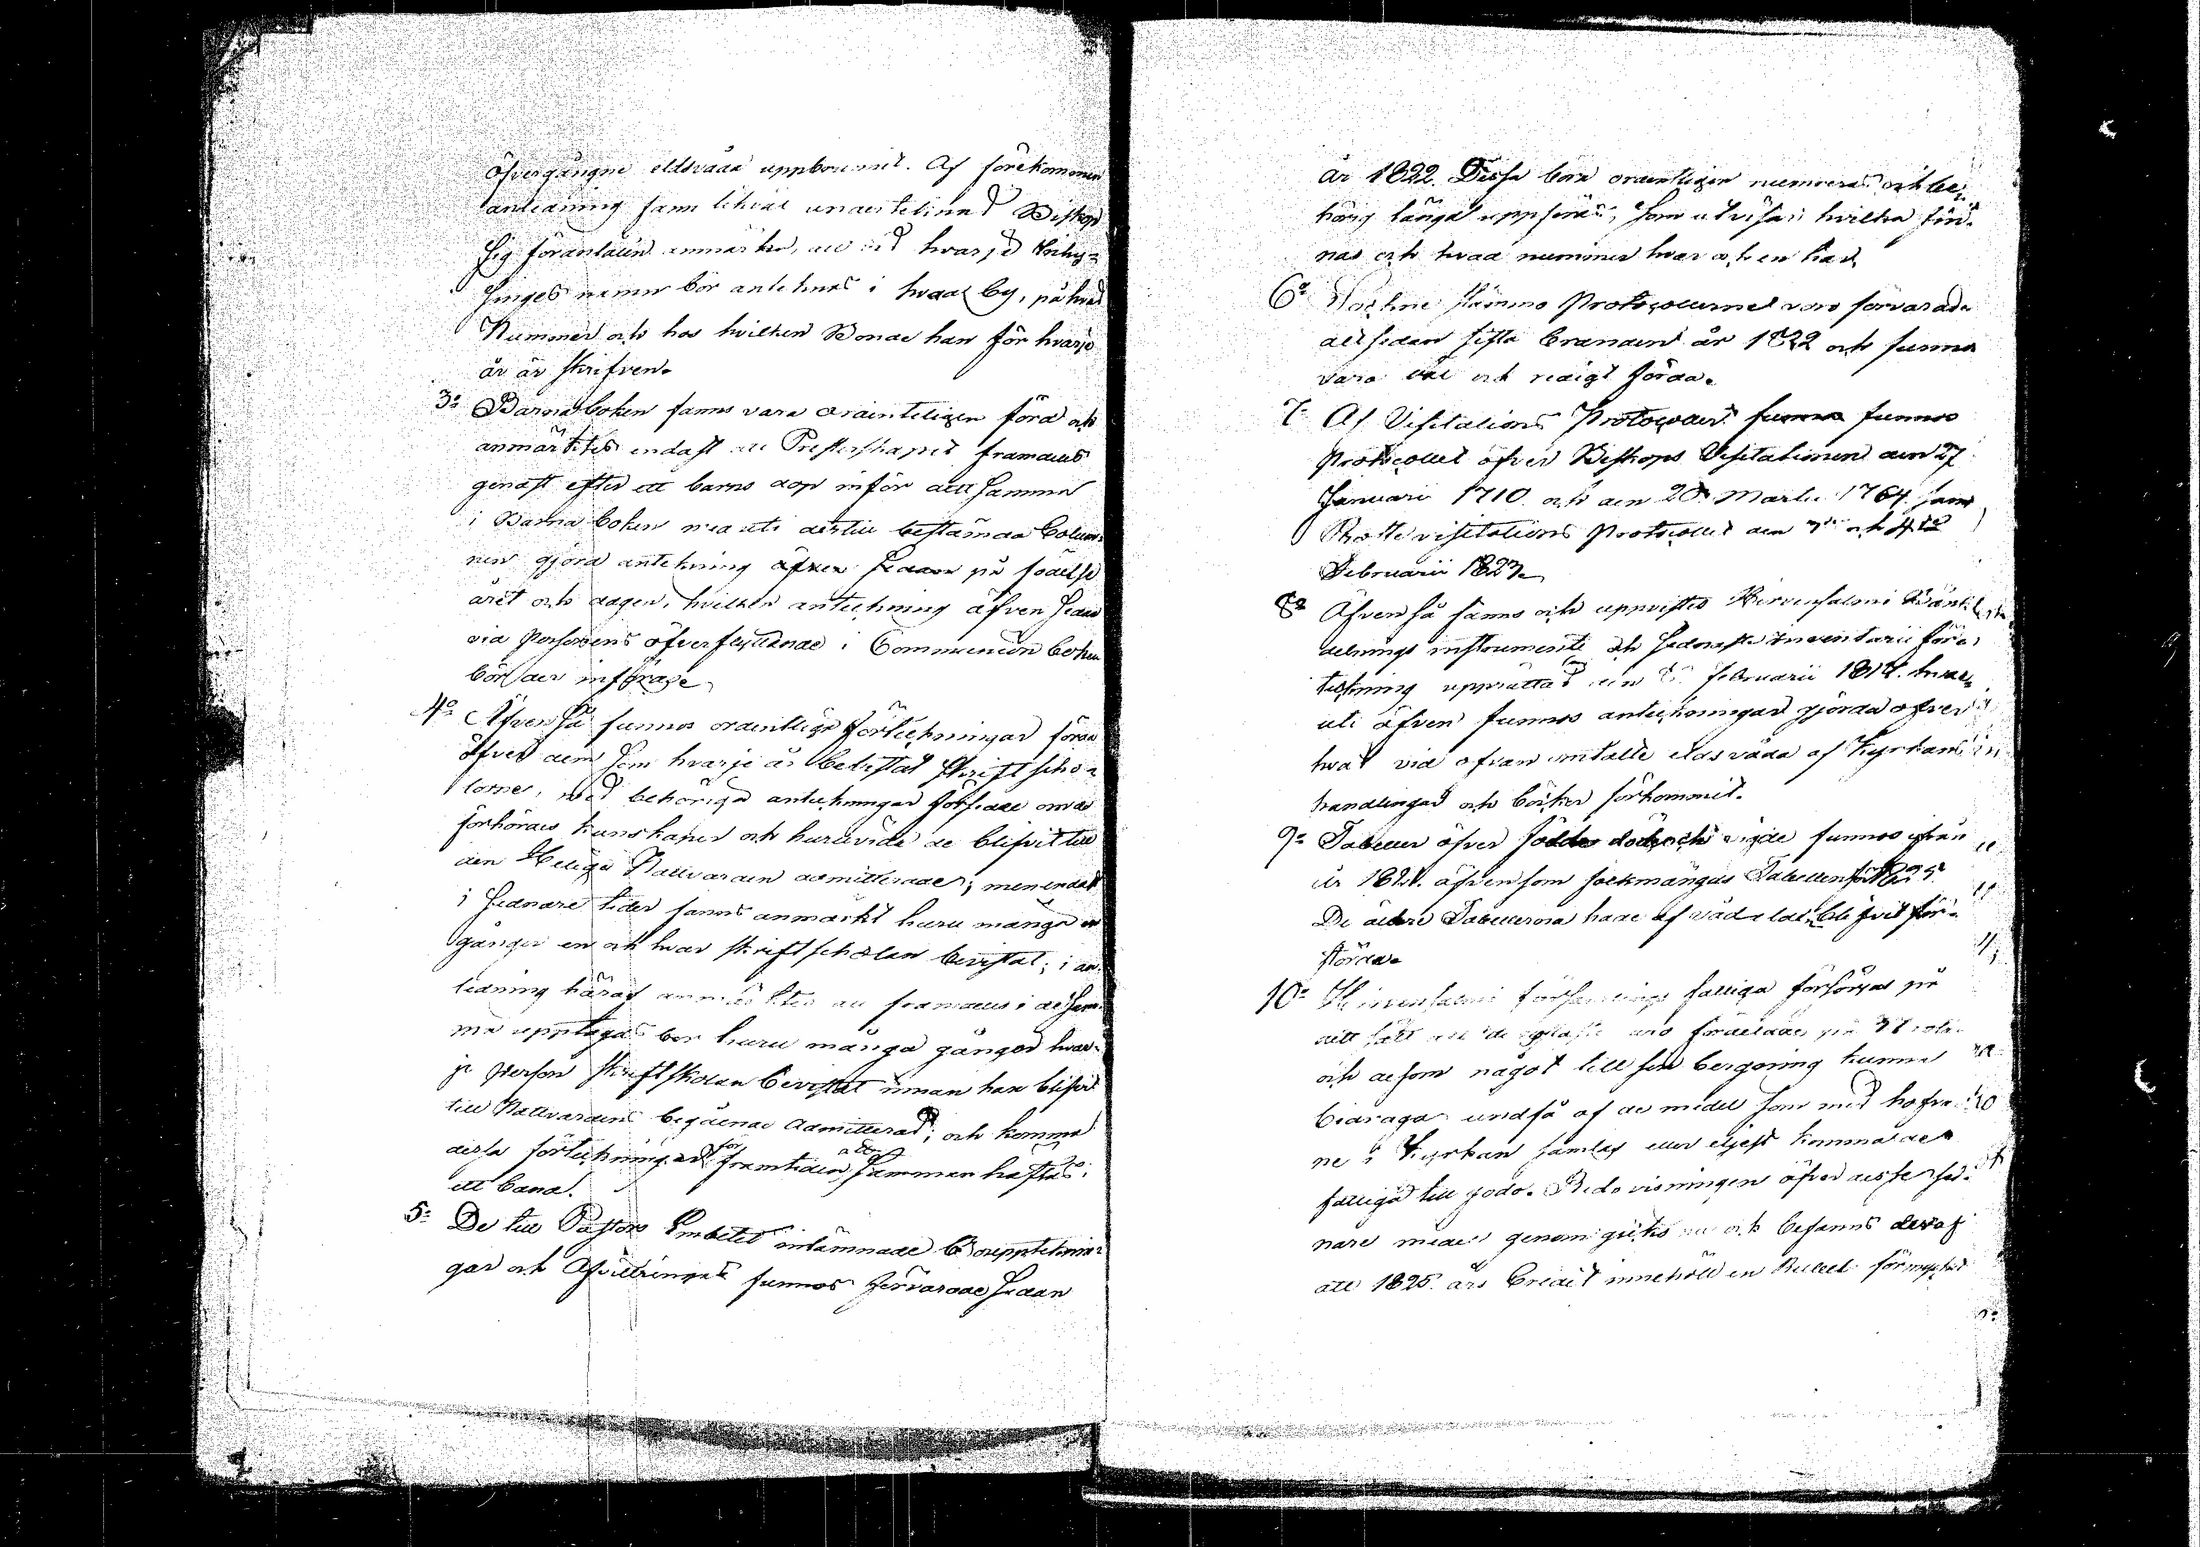 öfvergångne eldsvåda uppbrunnit. Af förekommen
anledning fann likväl underteknad Biskop
sig föranlåten anmärka, att vid hvarje Inhy-
singes namn bör anteknas i hvad by, på hvad
Nummer och hos hvilken Bonde han för hvarje
år är skrifven.
3o Barnaboken fanns vara ordenteligen förd och
anmärktes endast att Presterskapet framdeles
genast efter ett barns dop inför detsamma
i Barnaboken med uti dertill bestämda Colum-
nen gjord antekning äfven sedan på födelse
året och dagen, hvilken anteckning äfven sedan
vid Personens öfverflyttande i Communion boken
bör der införas.
4o Äfven så funnos ordentliga förteckningar förda
öfver dem som hvarje år bevistat Skriftscho-
lorne, med behöriga anteckningar försedde om de
förhördes kunskaper och huruvida de blifvit till
den Heliga Nattvarden admitterade; men endast
i sednare tider fanns anmärkt huru många
gånger en och hvar skriftscholan bevistat; i an-
ledning häraf anmärktes att framdeles i desam-
ma upptagas bör huru många gånger hvar-
je Person skriftskolan bevistat innan han blifvit
till Nattvardens begående admitterad; och komma
dessa förteckningar för framtiden att sammanhäftas i
ett band.
5o De till Pastors Embetet inlämnade Bouppteknin-
gar och Afvittringar funnos förvarade sedan
år 1822. Dessa böra ordentligen numreras och be-
hörig längd uppföras, som utvisar hvilka fin-
nas och hvad nummer hvar och en har.
6o Sockne stämmo Protocollerne voro förvarade
allt sedan sista branden år 1822 och funnos
vara väl och redigt förda.
7o Af Visitations Protocoller funnos funnos
Protocollet öfver Biskops Visitationen den 27
Januari 1710. och den 20 Martii 1764. samt
Prosте visitations Protocollet den 3die och 4de
Februarii 1823.
8o Äfven så fanns och uppvistes
delnings instrumente och sednaste Inventarii för-
teckning upprättad den Februarii 1818. hvar-
uti äfven funnos anteckningar gjorda öfver
hvad vid ofvan omtalte eldsvåda af Kyrkans
handlingar och böcker förkommit.
9o Tabeller öfver födde döde och vigde funnos ifrån
år 1821. äfvensom folkmängds Tabellen för 1825.
De äldre Tabellerna hade af våd eld blifvit för-
störda.
10o församlings fattiga försörjas på
sätt att de äro fördelade på rotar
och de som något till sin bergning kunna
bidraga undfå af de medel som med håfvar-
ne i Kyrkan samlas eller eljest komma de
fattiga till godo. Redovisningen öfver desse sed-
nare medel genomgicks och befanns deraf
att 1825. års Credit innehöll en Rubel förmycket